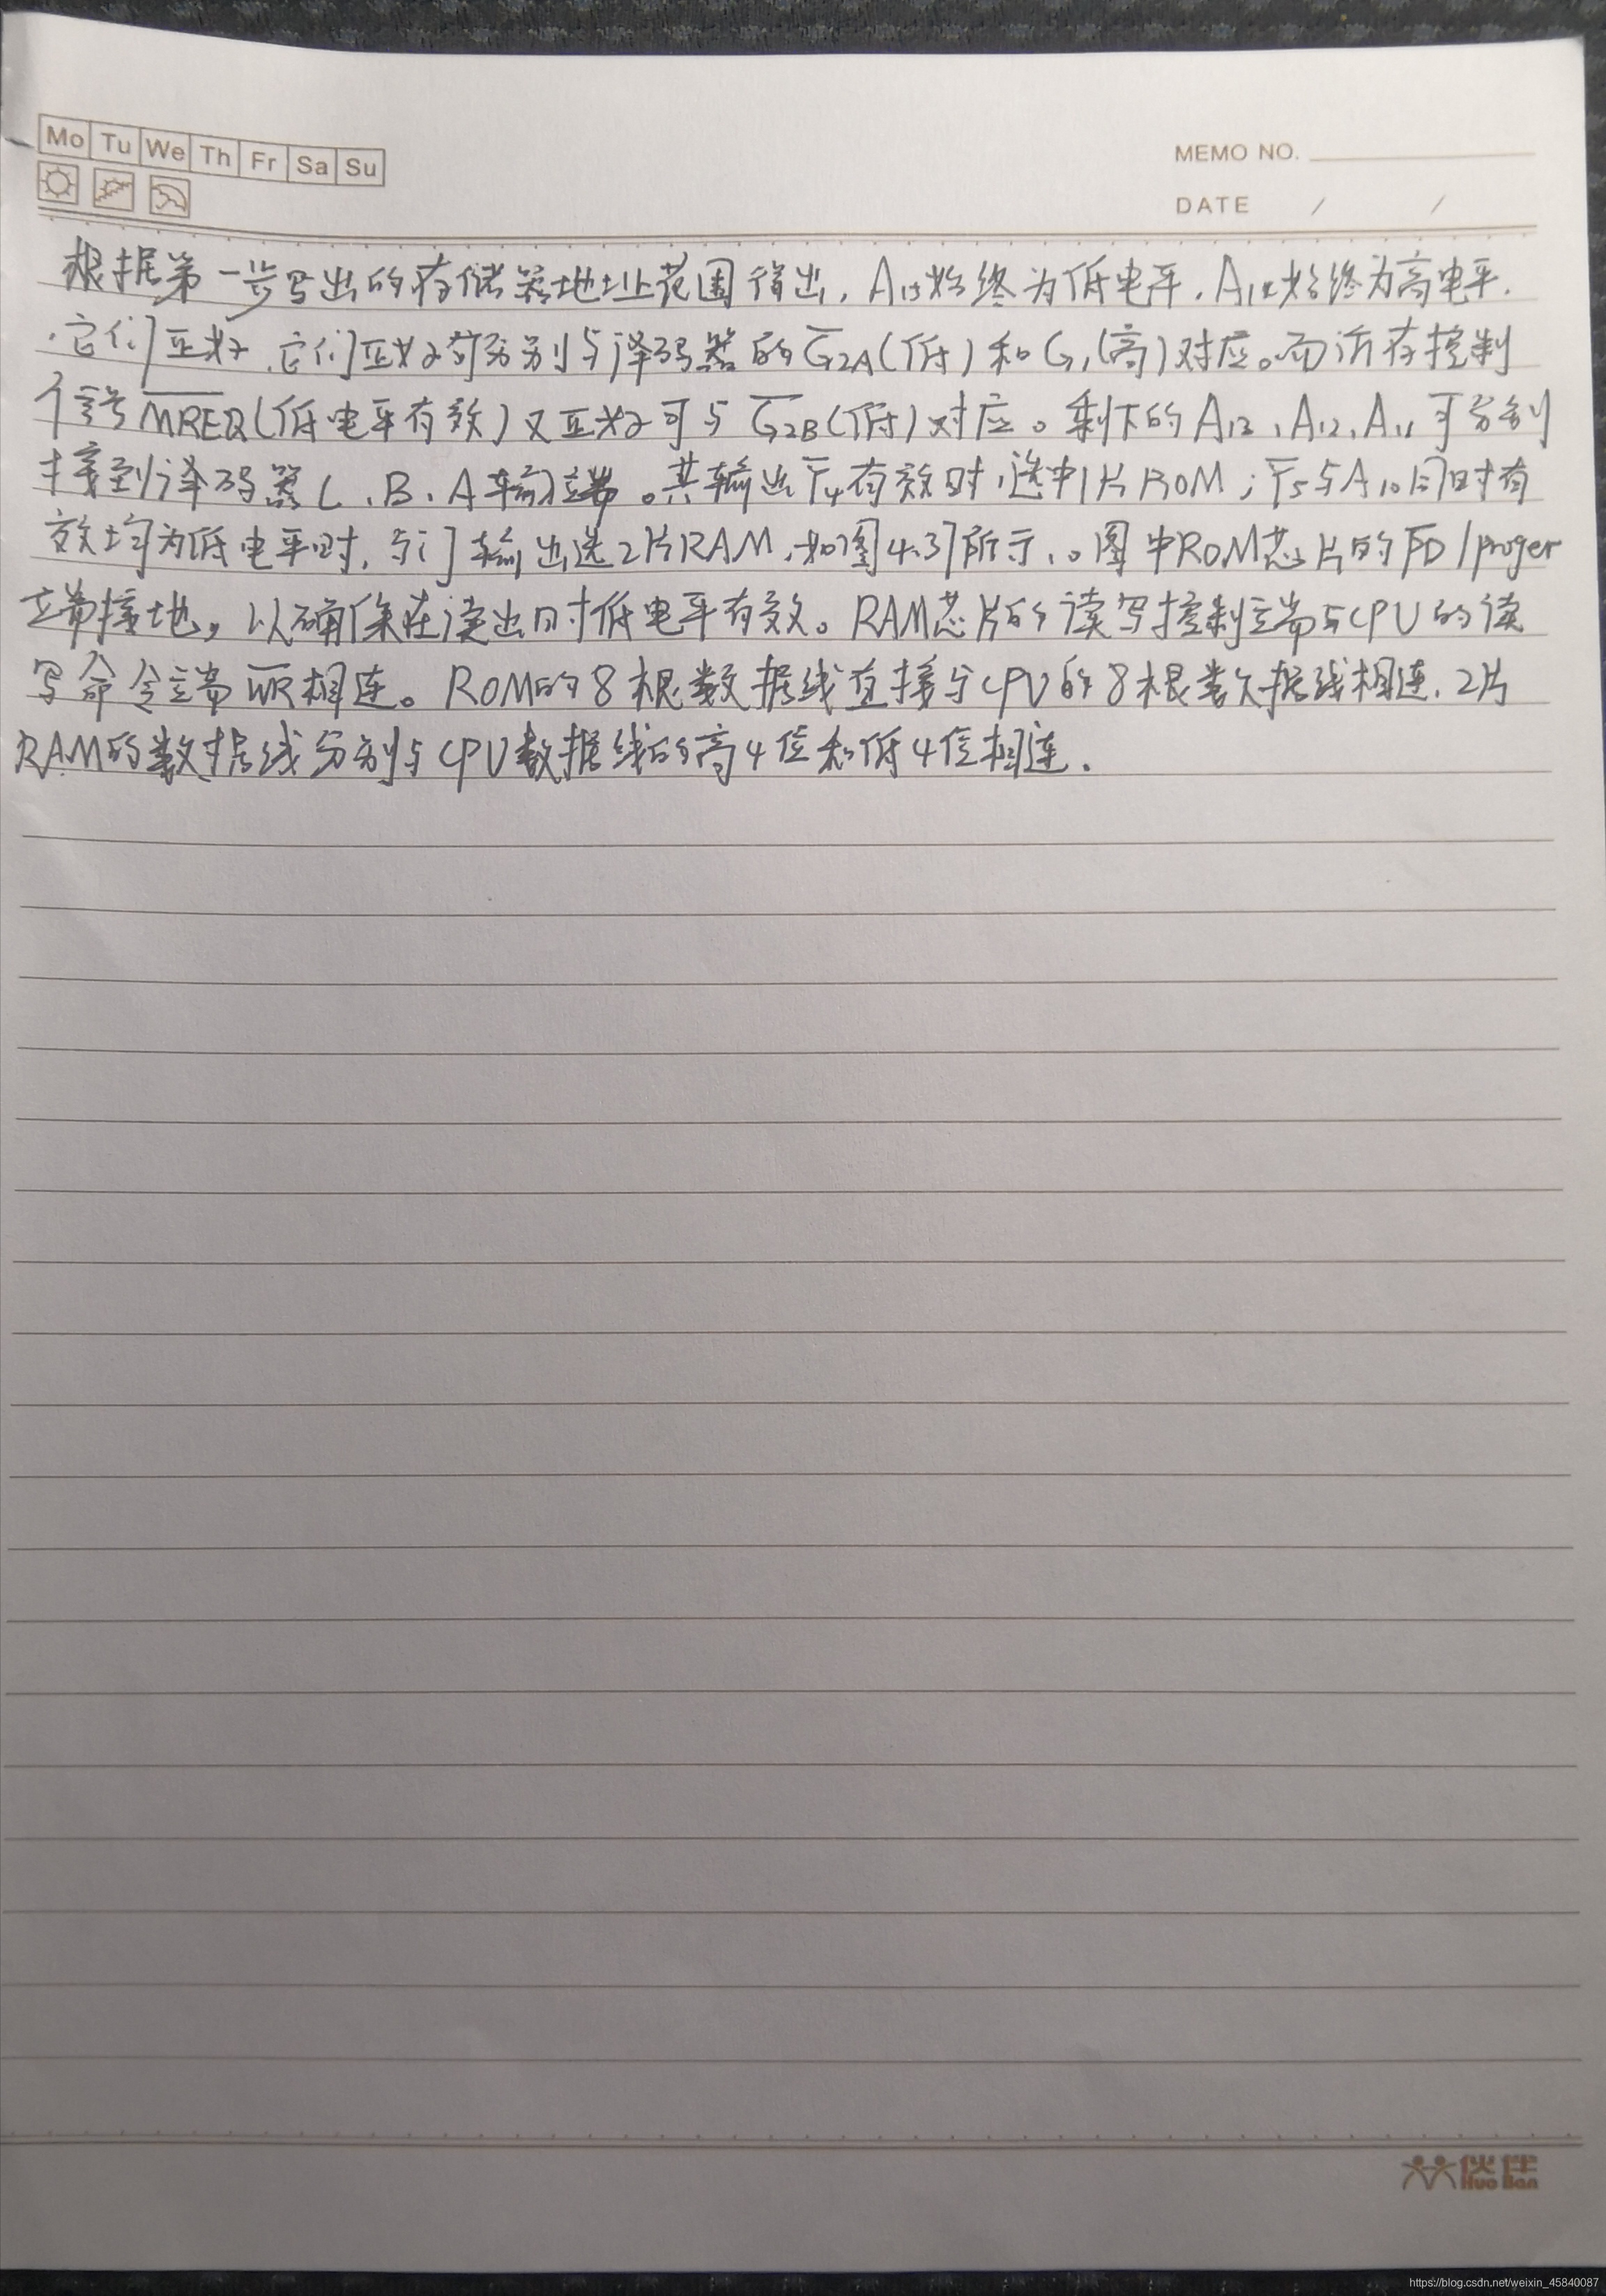 Mo Tu We Th Fr Sa Su
MEMO NO.
DATE / /
根据第一步写出的存储器地址范围得出,A₁₅始终为低电平,A₁₄始终为高电平.
它们正好,它们正好可分别与译码器的G̅₂A(低)和G₁(高)对应。而访存控制
个信号M̅R̅E̅Q̅(低电平有效)又正好可与G̅₂B(低)对应。剩下的A₁₃、A₁₂、A₁₁可分别
接到译码器C、B、A输入端。其输出Y̅₄有效时,选中1片ROM;Y̅₅与A₁₀同时有
效均为低电平时,与门输出选2片RAM,如图4.37所示,。图中ROM芯片的P̅D̅/proger
端接地,以确保在读出时低电平有效。RAM芯片的读写控制端与CPU的读
写命令端W̅R̅相连。ROM的8根数据线直接与CPU的8根数据线相连,2片
RAM的数据线分别与CPU数据线的高4位和低4位相连.
伙伴
Huo Ban
https://blog.csdn.net/weixin_45840087